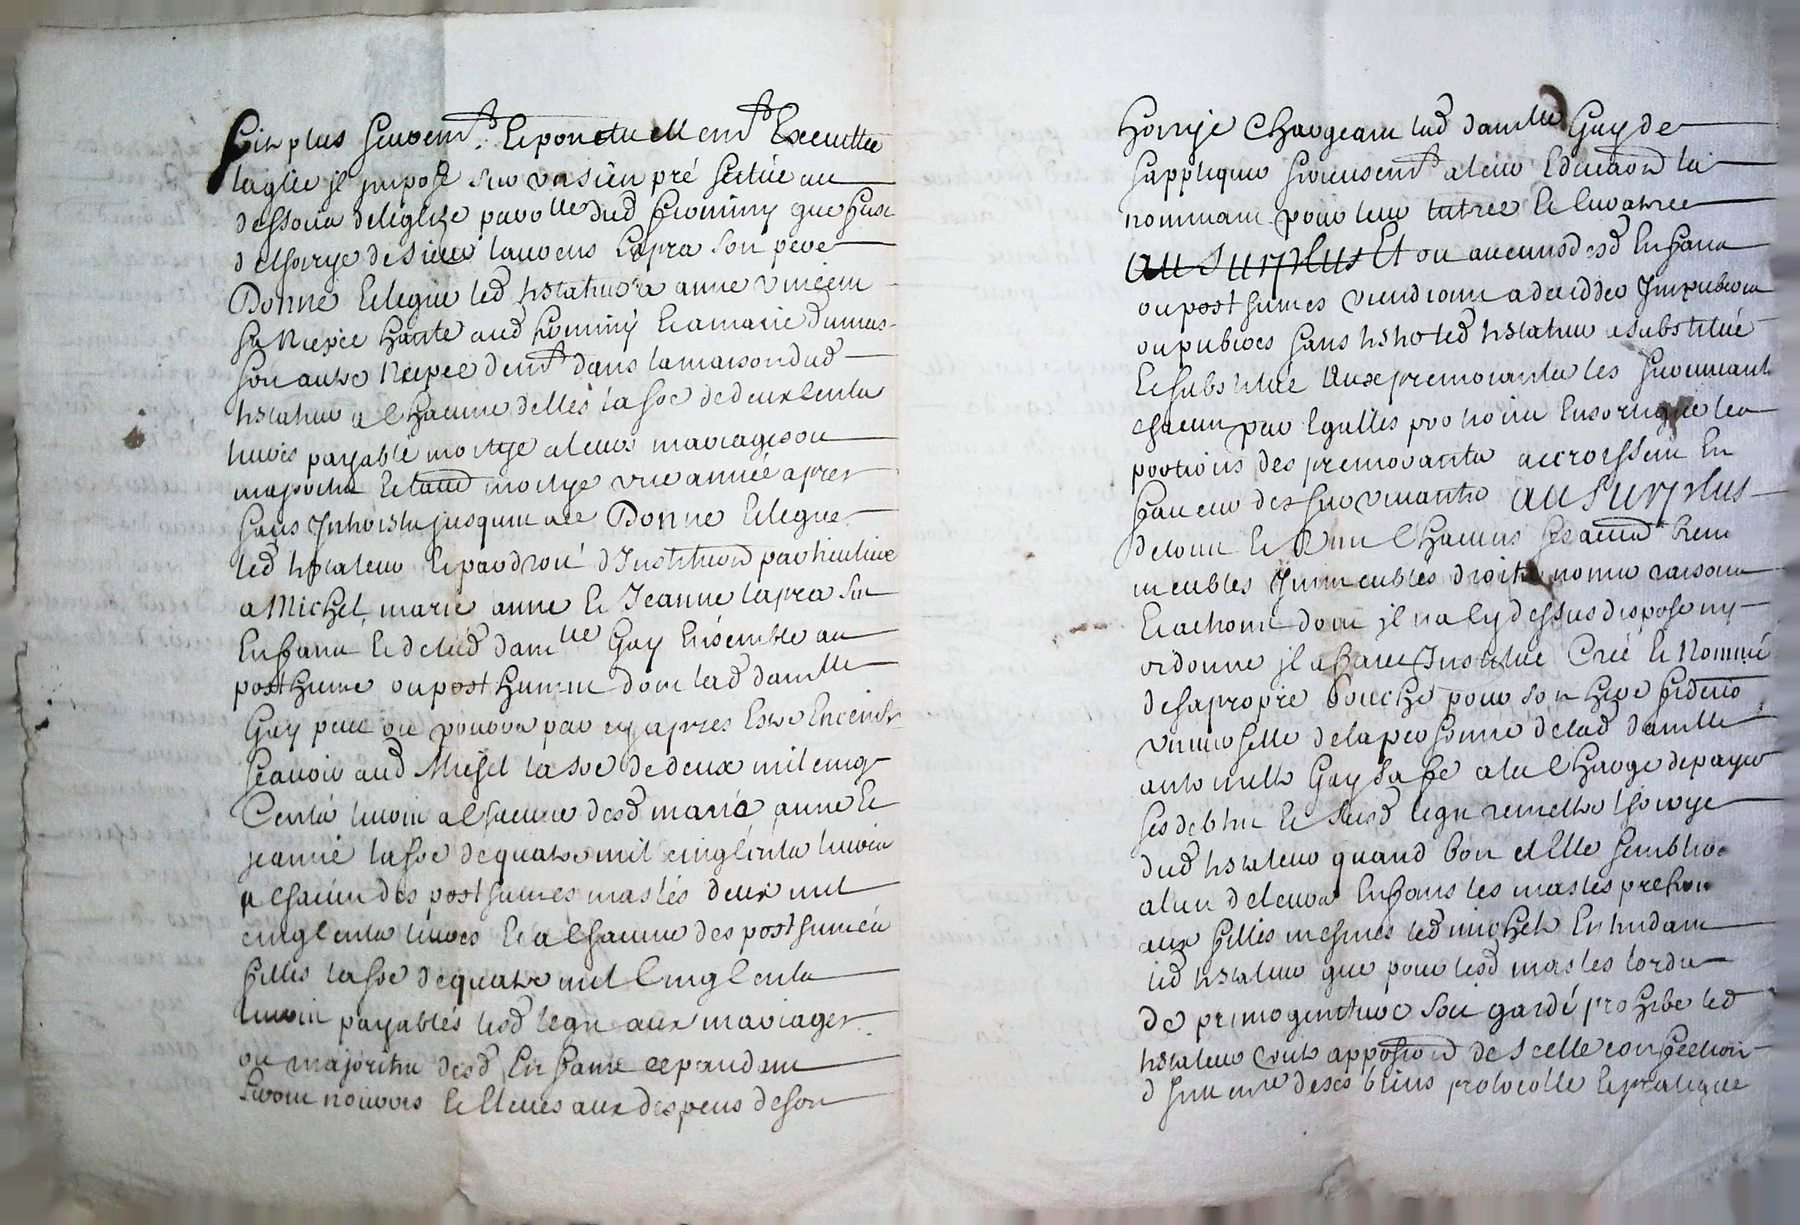 soit plus seurem.t et ponctuellem.t Executtée
laquelle il impose sur un sien pré scitué au
dessoua de leglize parolle dud frominy que fust
d elhoirye de sieur laurens Lapra son pere
Donne Et legue led testateur a anne vincent
sa Niepce hante aud frominy Et a marie dumas
son autre Niepce demt dans la maison dud
testateur a Chacune delles la soe de deux Centz
livres payable moitye a leurs mariages ou
majorité Et laud moitye une année apres
sans Interetz jusqu'au ace Donne Et legue
led testateur Et par droit d Institution particulliere
a Michel, marie anne Et Jeanne lapra ses
Enffans Et de lad damlle Guy Ensemble au
posthume ou posthumes dont lad damlle
Guy peut ou pourra par cy apres Estre Enceinte
scavoir aud Michel la soe de deux mil cinq
Centz livres a chacune desd marie anne Et
jeanne la soe de quatre mil cinq Centz livres
a chacun des postumes masles deux mil
cinq centz livres Et a Chacune des postumes
filles la soe de quatre mil Cinq Centz
livres payables lesd legtz aux mariages
ou majorité desd Enfans cepandant
seront nouris Et Eleues aux despens de son
Hoirye Chargeant lad damlle Guy de
sappliquer serieusemt a leur Education la
nommant pour leur tutrice Et Curatrice
au surplus Et ou aucuns desd Enfans
ou postumes viendront a decidder Impuberes
ou puberes sans tester led testateur a substitué
Et substitue aux premourantz les survivant
chacun par Egalles portions Ensorte que les
portions des premourantz accroissent En
faueur des survivantz au surplus
de tous Et Un Chacuns ses autres biens
meubles Immeubles droitz noms raisons
Et actions dont il na cy dessus dispose ny
ordonne il a fait Institue Créé Et Nommé
de sa propre bouche pour son here fiderie
universelle de la personne de lad damlle
antoinette Guy sa fe a la Charge de payer
ses debtes Et susd legtz remettre lhoirye
dud testateur quand bon Et Elle semblera
a lun de leurs Enfans les masles preferes
aux filles mesmes led michel Entendant
led testateur que pour lesd masles lordre
de primogeniture soit gardé prohibe led
testateur toute apposition de scelle confection
d Inuenre de ses biens protocolle Et pratique